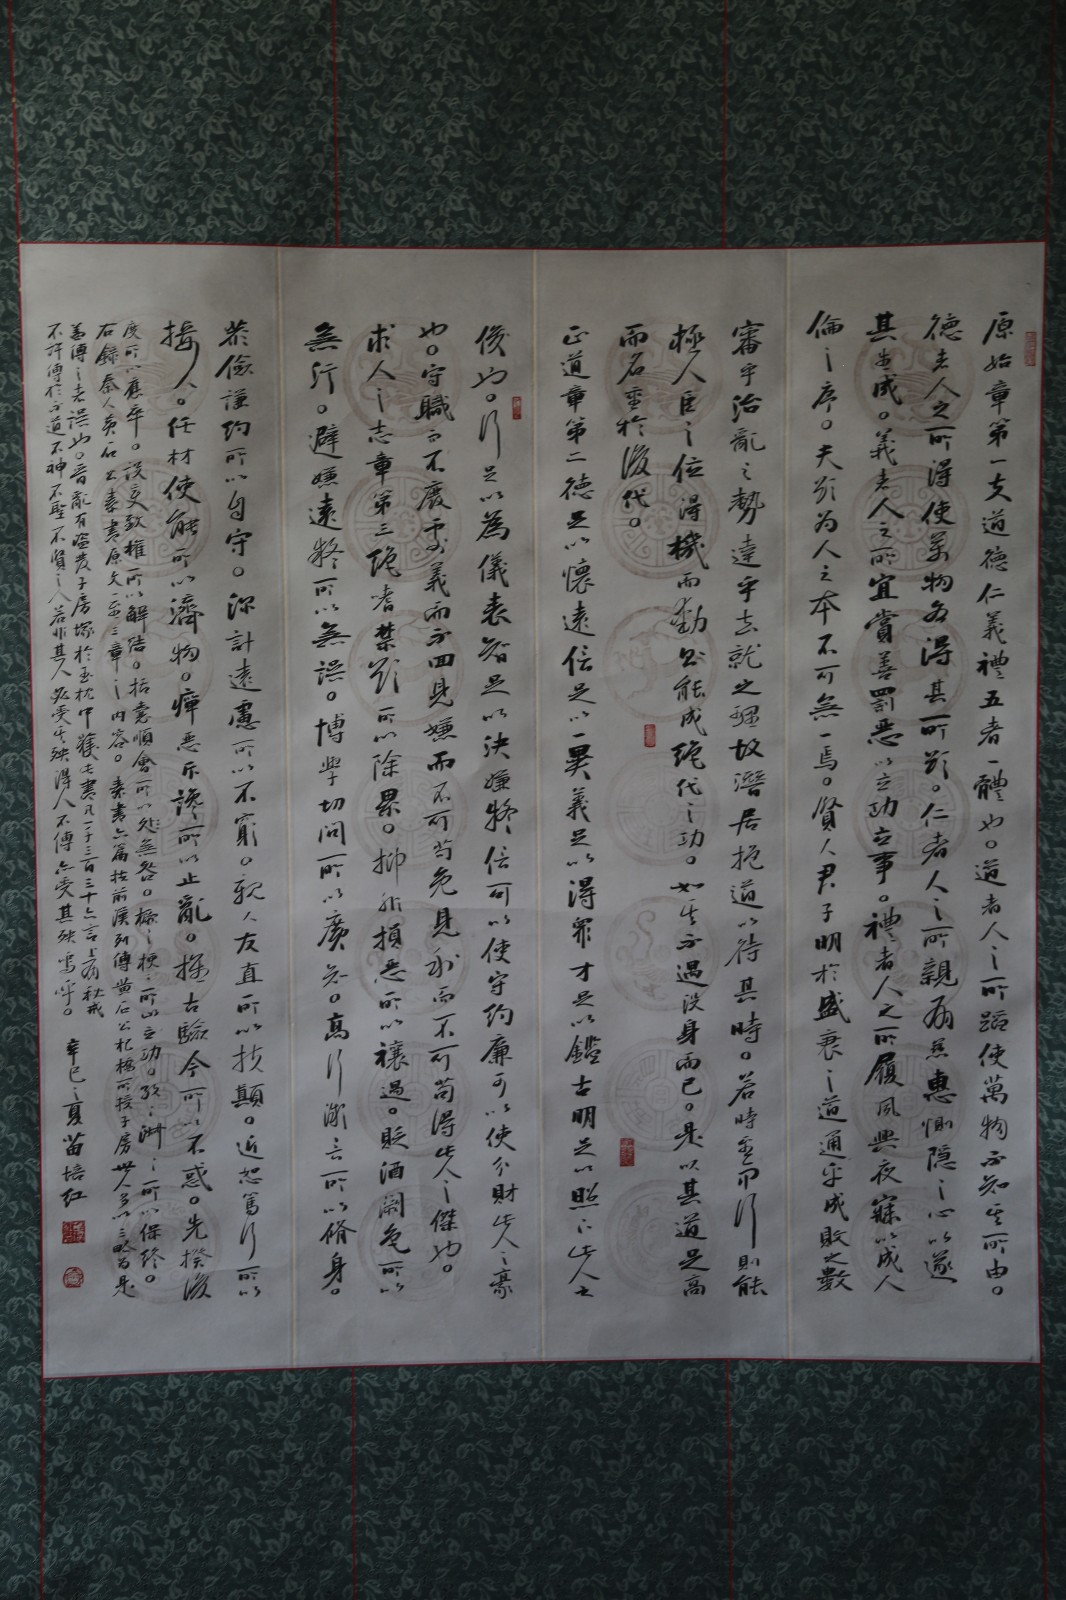 原始章第一夫道德仁義禮五者一體也。道者人之所蹈使萬物不知其所由。
德者人之所得使萬物各得其所欲。仁者人之所親有慈惠惻隱之心以遂
其生成。義者人之所宜賞善罰惡以立功立事。禮者人之所履夙興夜寐以成人
倫之序。夫欲为人之本不可無一焉。賢人君子明於盛衰之道通乎成敗之數
審乎治亂之勢達乎去就之理故潛居抱道以待其時。若時至而行則能
極人臣之位得機而動則能成絕代之功。如其不遇沒身而已。是以其道足高
而名重於後代。
正道章第二德足以懷遠信足以一異義足以得眾才足以鑑古明足以照下此人之
俊也。行足以為儀表智足以決嫌疑信可以使守約廉可以使分財此人之豪
也。守職而不廢處義而不回見嫌而不可苟免見利而不可苟得此人之傑也。
求人之志章第三絕嗜禁欲所以除累。抑非損惡所以禳過。貶酒闕色所以
無汙。避嫌遠疑所以無誤。博學切問所以廣知。高行微言所以脩身。
恭儉謹約所以自守。深計遠慮所以不窮。親人友直所以扶顛。近恕篤行所以
接人。任材使能所以濟物。癉惡斥讒所以止亂。推古驗今所以不惑。先揆後
度所以應卒。設变致權所以解结。括囊順會所以無咎。橛橛梗梗所以立功。孜孜淑淑所以保終。
右錄秦人黄石公素書原文一至三章之内容。素書六篇按前漢列傳黄石公圯橋所授子房世人多以三略为是
盖傳之者誤也。晋亂有盜發子房塚於玉枕中獲此書凡一千三百三十六言上有秘戒
不許傳於不道不神不聖不賢之人若非其人必受其殃得人不傳亦受其殃嗚呼。
辛巳之夏苗培红